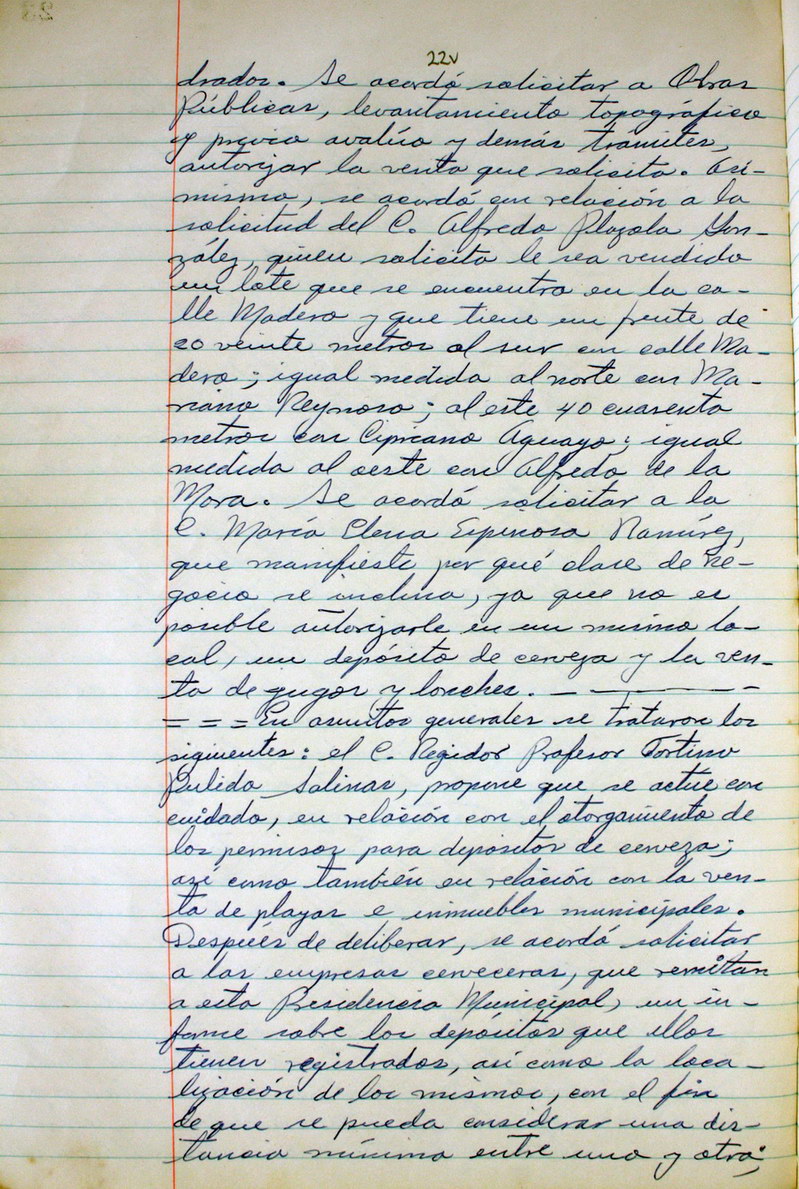 22v
drados. Se acordó solicitar a Obras
Públicas, levantamiento topográfico
y previo avalúo y demás trámites,
autorizar la venta que solicita. Asi-
mismo, se acordó con relación a la
solicitud del C. Alfredo Plazola Gon-
zález, quien solicita le sea vendido
un lote que se encuentra en la ca-
lle Madero y que tiene un frente de
20 veinte metros al sur con calle Ma-
dero; igual medida al norte con Ma-
riano Reynoso; al este 40 cuarenta
metros con Cipriano Aguayo; igual
medida al oeste con Alfredo de la
Mora. Se acordó solicitar a la
C. María Elena Espinosa Ramírez,
que manifieste por qué clase de ne-
gocio se inclina, ya que no es
posible autorizarle en un mismo lo-
cal, un depósito de cerveza y la ven-
ta de jugos y lonches. — — — —
= = = En asuntos generales se trataron los
siguientes: el C. Regidor Profesor Fortino
Pulido Salinas, propone que se actúe con
cuidado, en relación con el otorgamiento de
los permisos para depósitos de cerveza;
así como también en relación con la ven-
ta de playas e inmuebles municipales.
Después de deliberar, se acordó solicitar
a las empresas cerveceras, que remitan
a esta Presidencia Municipal, un in-
forme sobre los depósitos que ellos
tienen registrados, así como la loca-
lización de los mismos, con el fin
de que se pueda considerar una dis-
tancia mínima entre uno y otro;